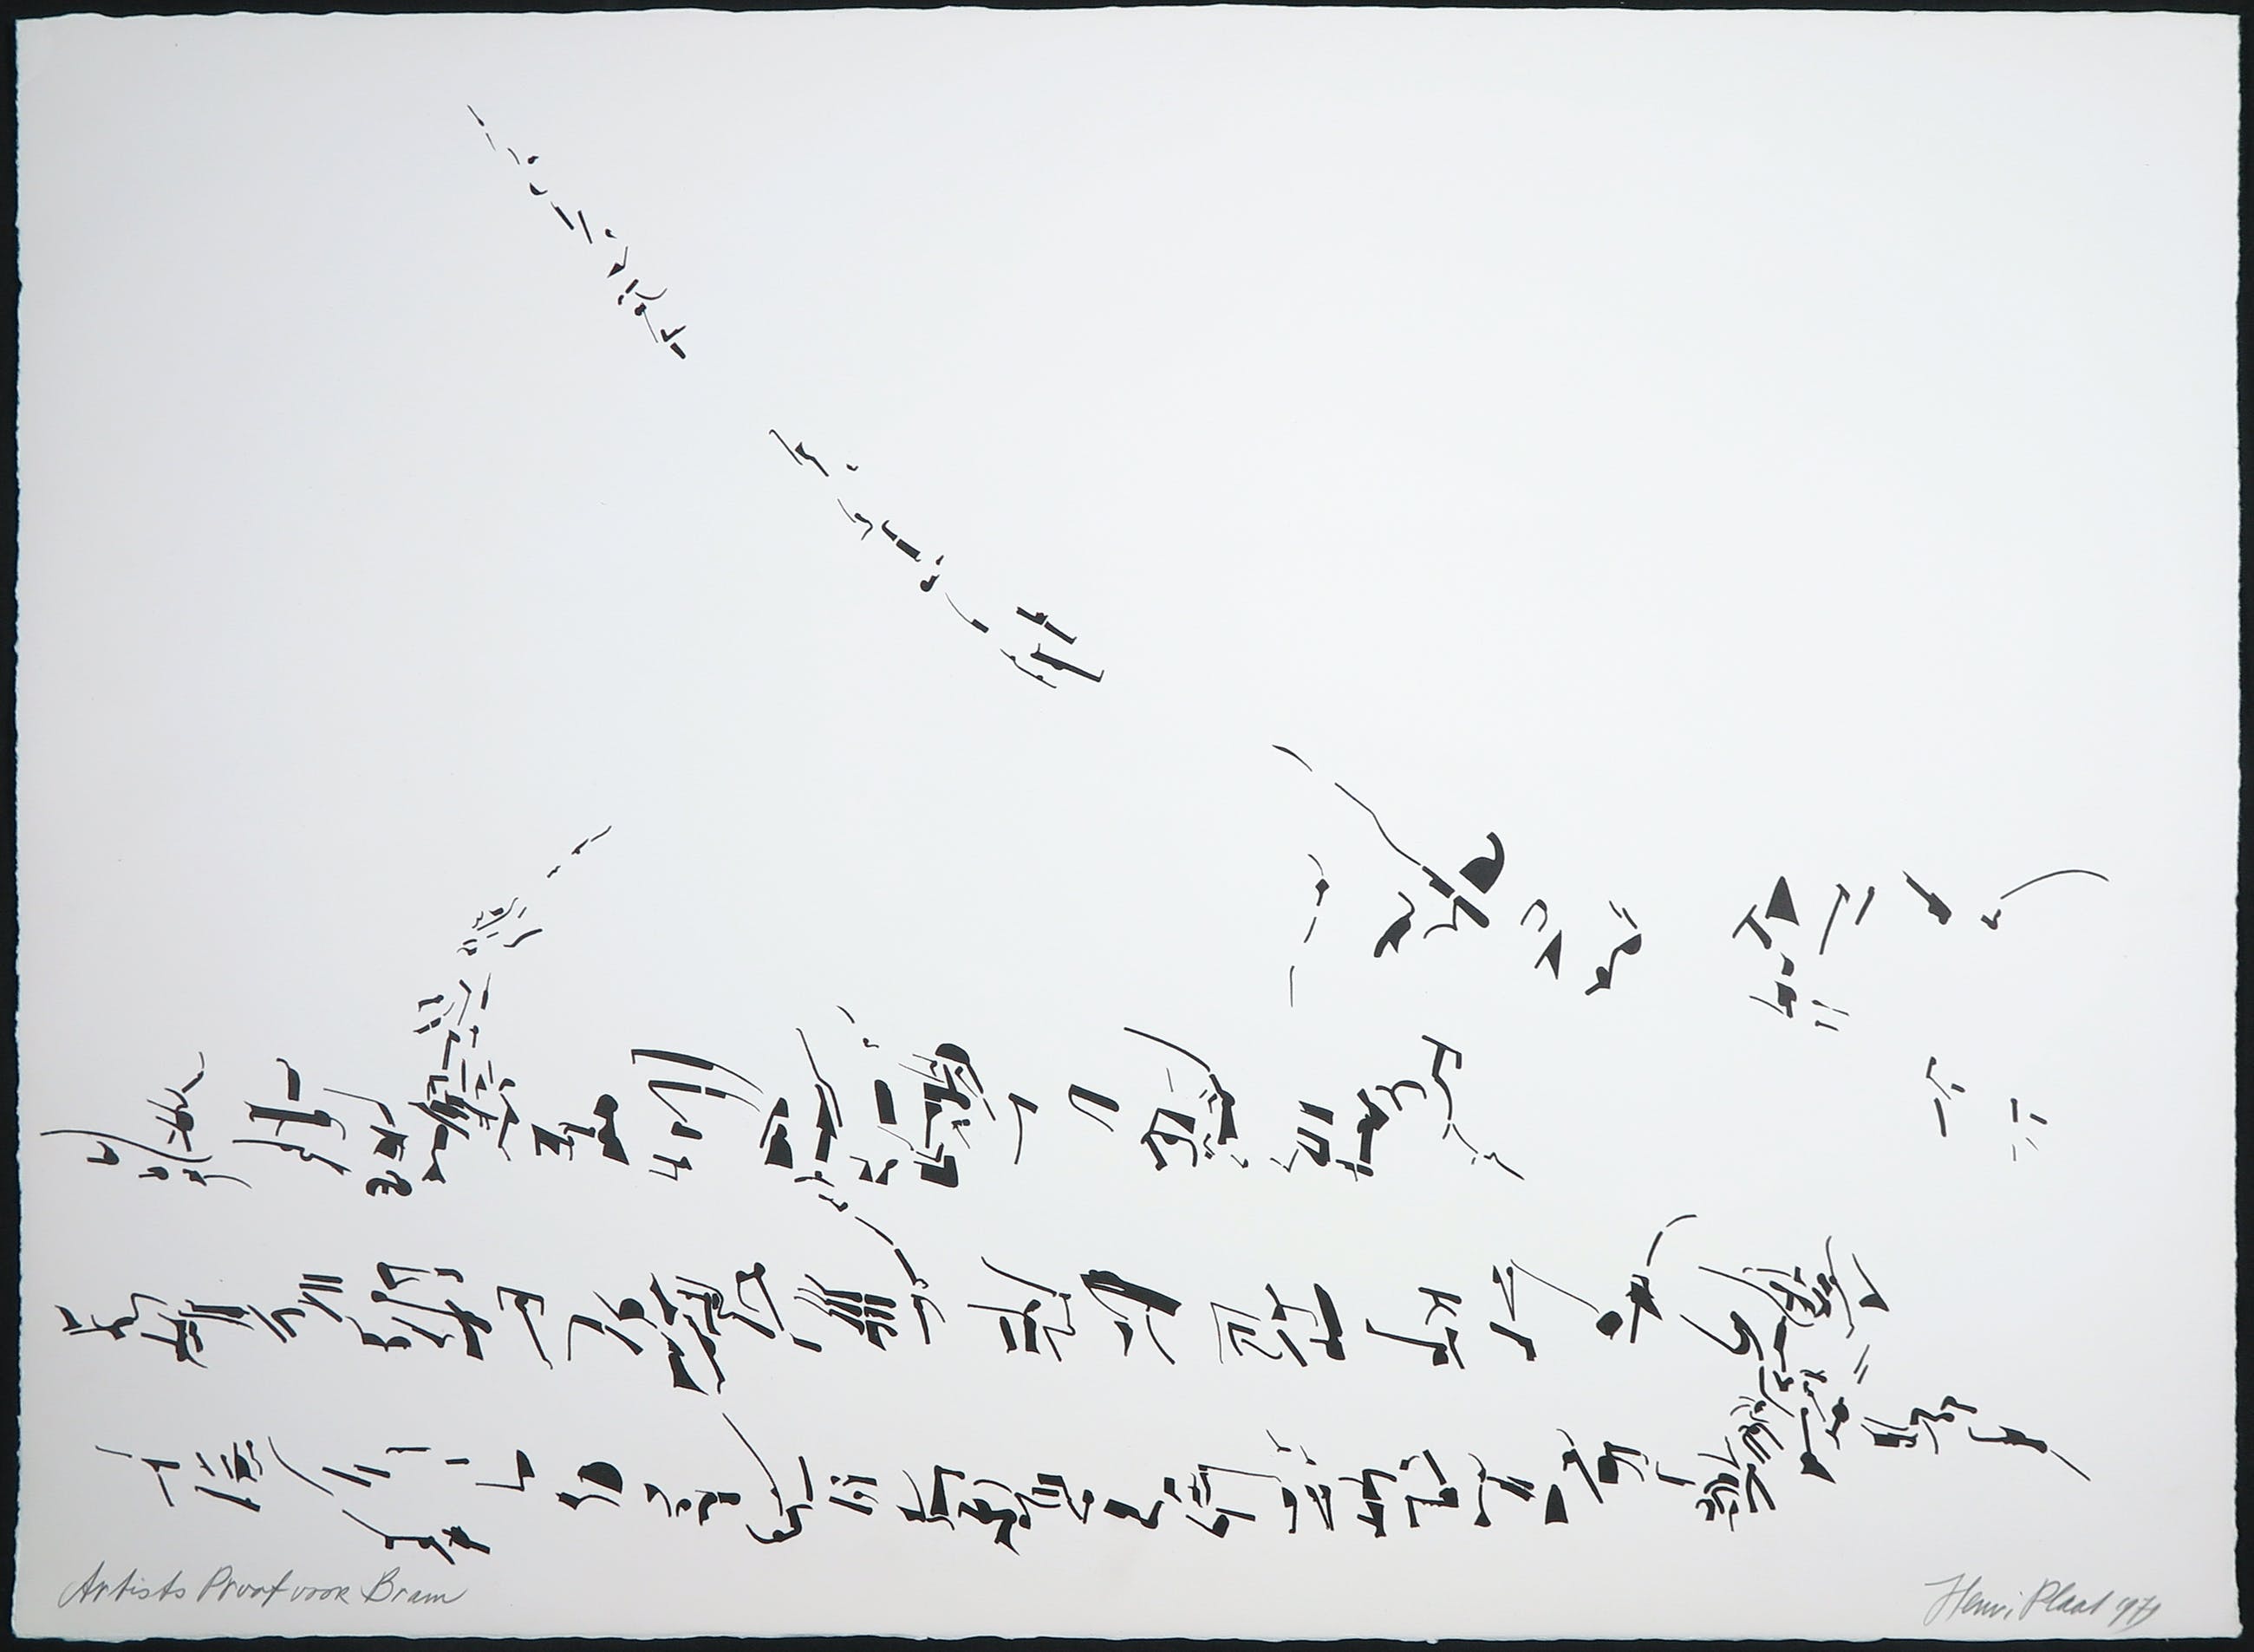 Artists Proof voor Bram
Henri Plaat